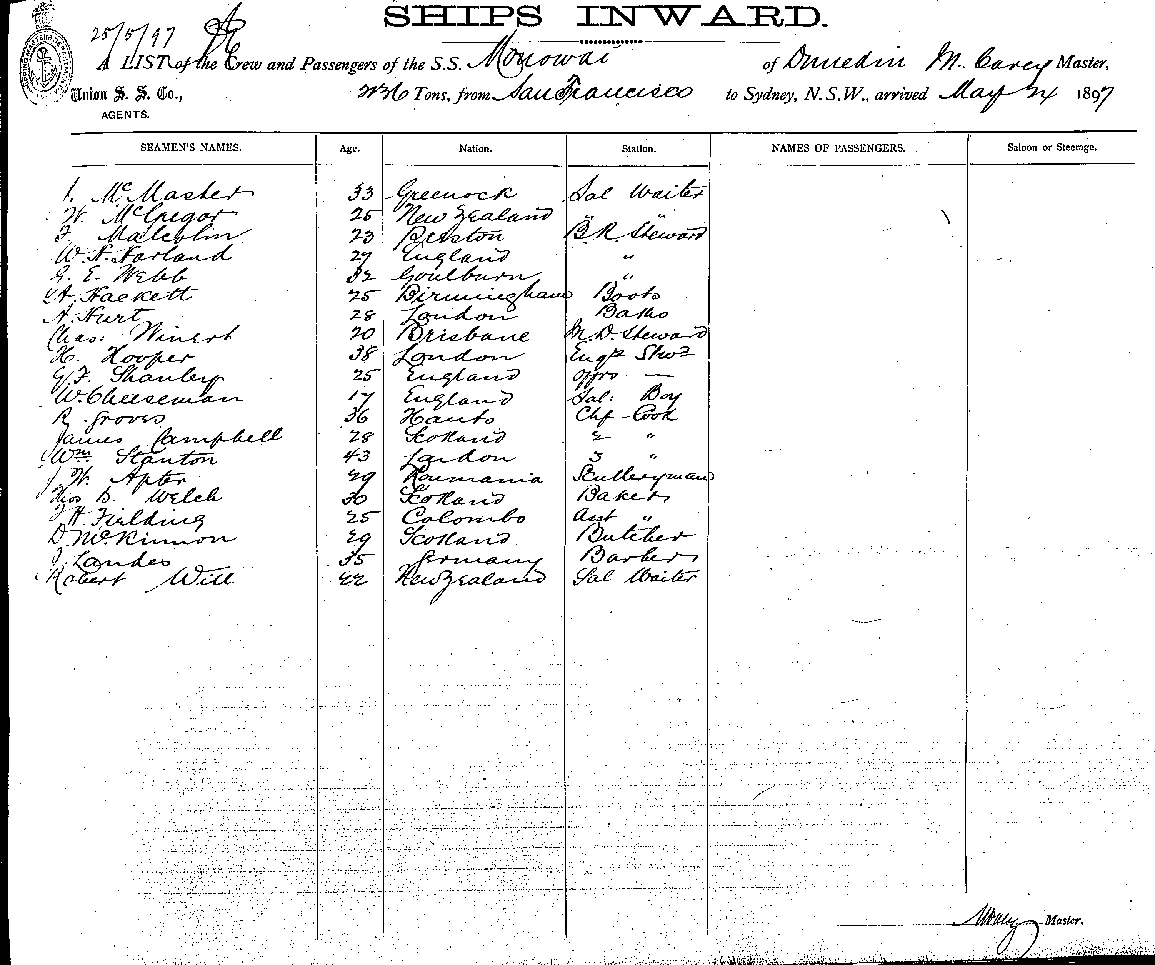 SHIPS INWARD.
25/5/97
A LIST of the Crew and Passengers of the S.S. Monowai of Dunedin M. Carey Master,
Union S. S. Co., Tons, from San Francisco to Sydney, N.S.W., arrived May 24 1897
AGENTS.
SEAMEN'S NAMES. Age. Nation. Station. NAMES OF PASSENGERS. Saloon or Steerage.
McMaster 33 Greenock Sal Waiter
W. McGregor 25 New Zealand " "
Malcolm 23 Preston B.R. Steward
W. H. Harland 27 England "
G. E. Webb 32 Goulburn "
Hackett 25 Birmingham Boots
A. Hurt 28 London Baths
Chas: Winert 20 Brisbane M.D. Steward
H. Hooper 38 London Engrs Stwd
G. F. Shanley 25 England Offrs —
W. Cheeseman 17 England Sal: Boy
R. Groves 36 Hants Chf - Cook
James Campbell 28 Scotland 2 "
Wm. Stanton 43 London 3 "
J. W. Apter 29 Roumania Scullerymand
Thos D. Welch 30 Scotland Baker
F H. Fielding 25 Colombo Asst "
D McKinnon 29 Scotland Butcher
J Landes 35 Germany Barber
Robert Will 22 New Zealand Sal Waiter
Master.